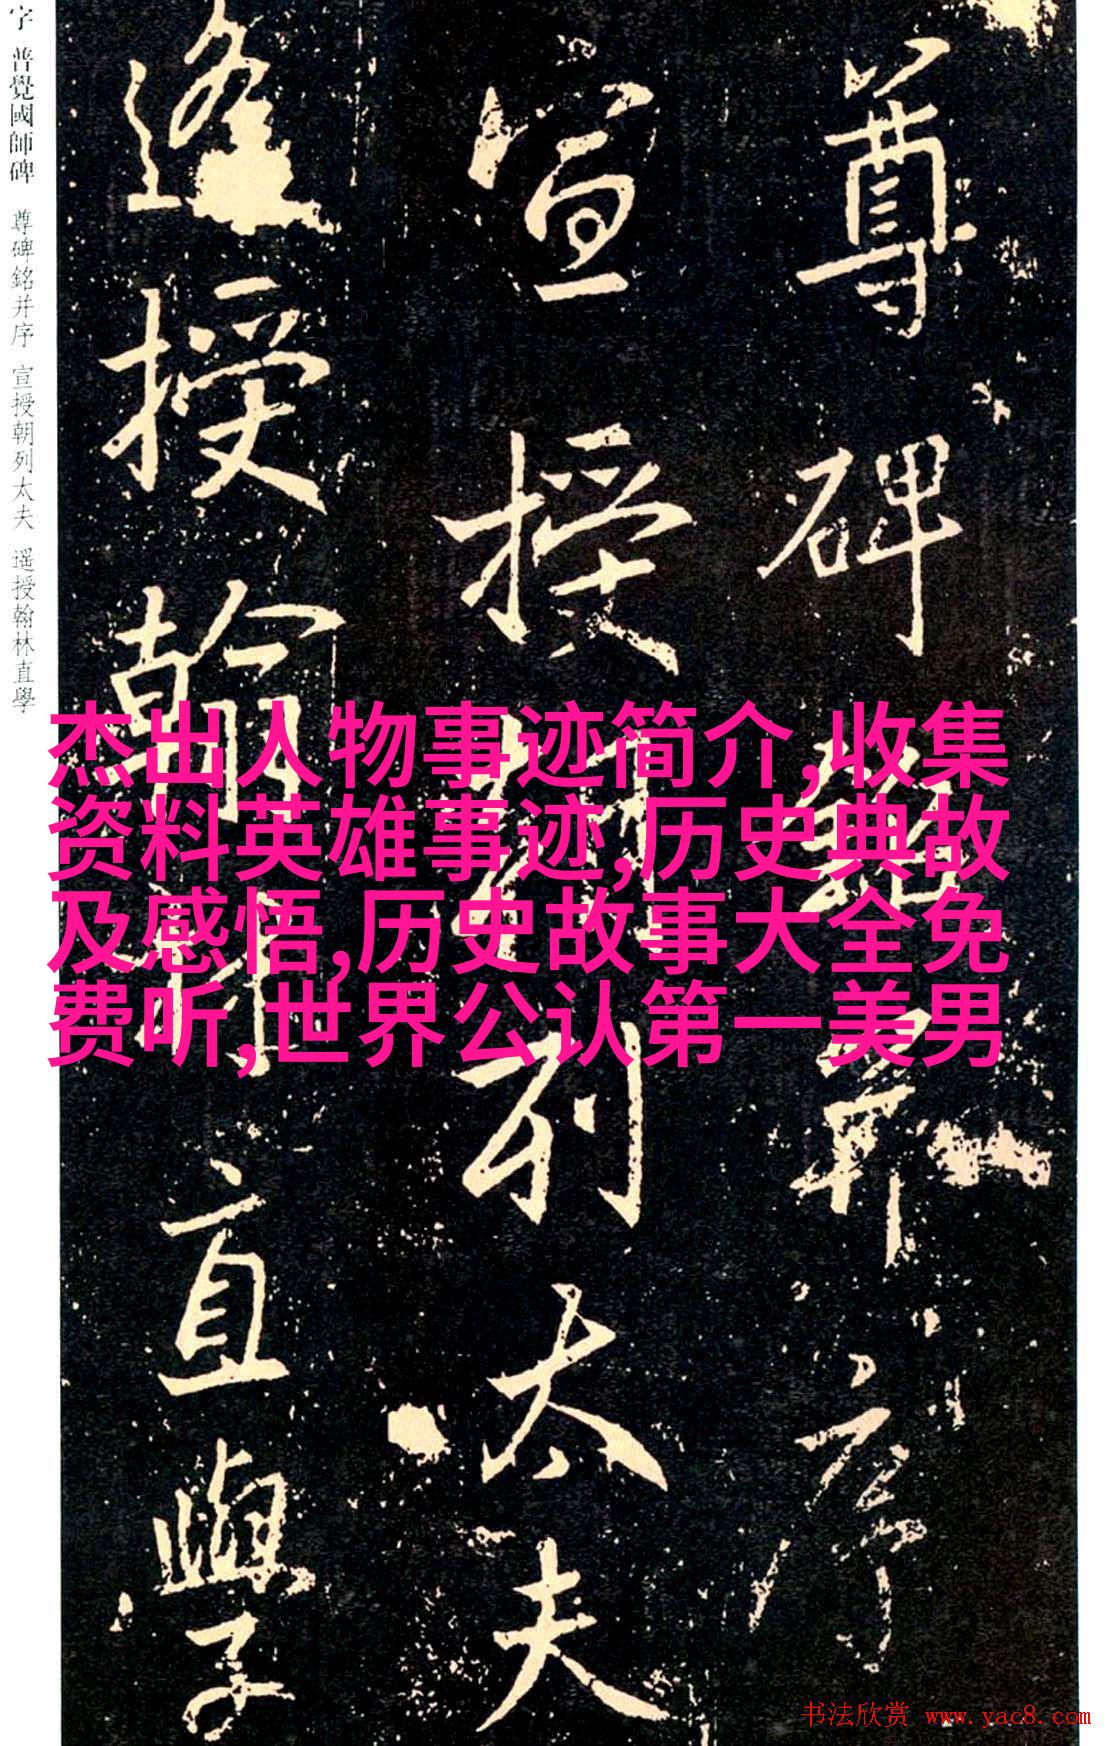 字 普覺國師碑 尊碑銘并序 宣授朝列太夫 遥授翰林直學
尊碑銘并序
宣授朝列太夫
遥授翰林直學
杰出人物事迹简介,收集
资料英雄事迹,历史典故
及感悟,历史故事大全免
费听,世界公认第一美男
书法欣赏 www.yac8.com